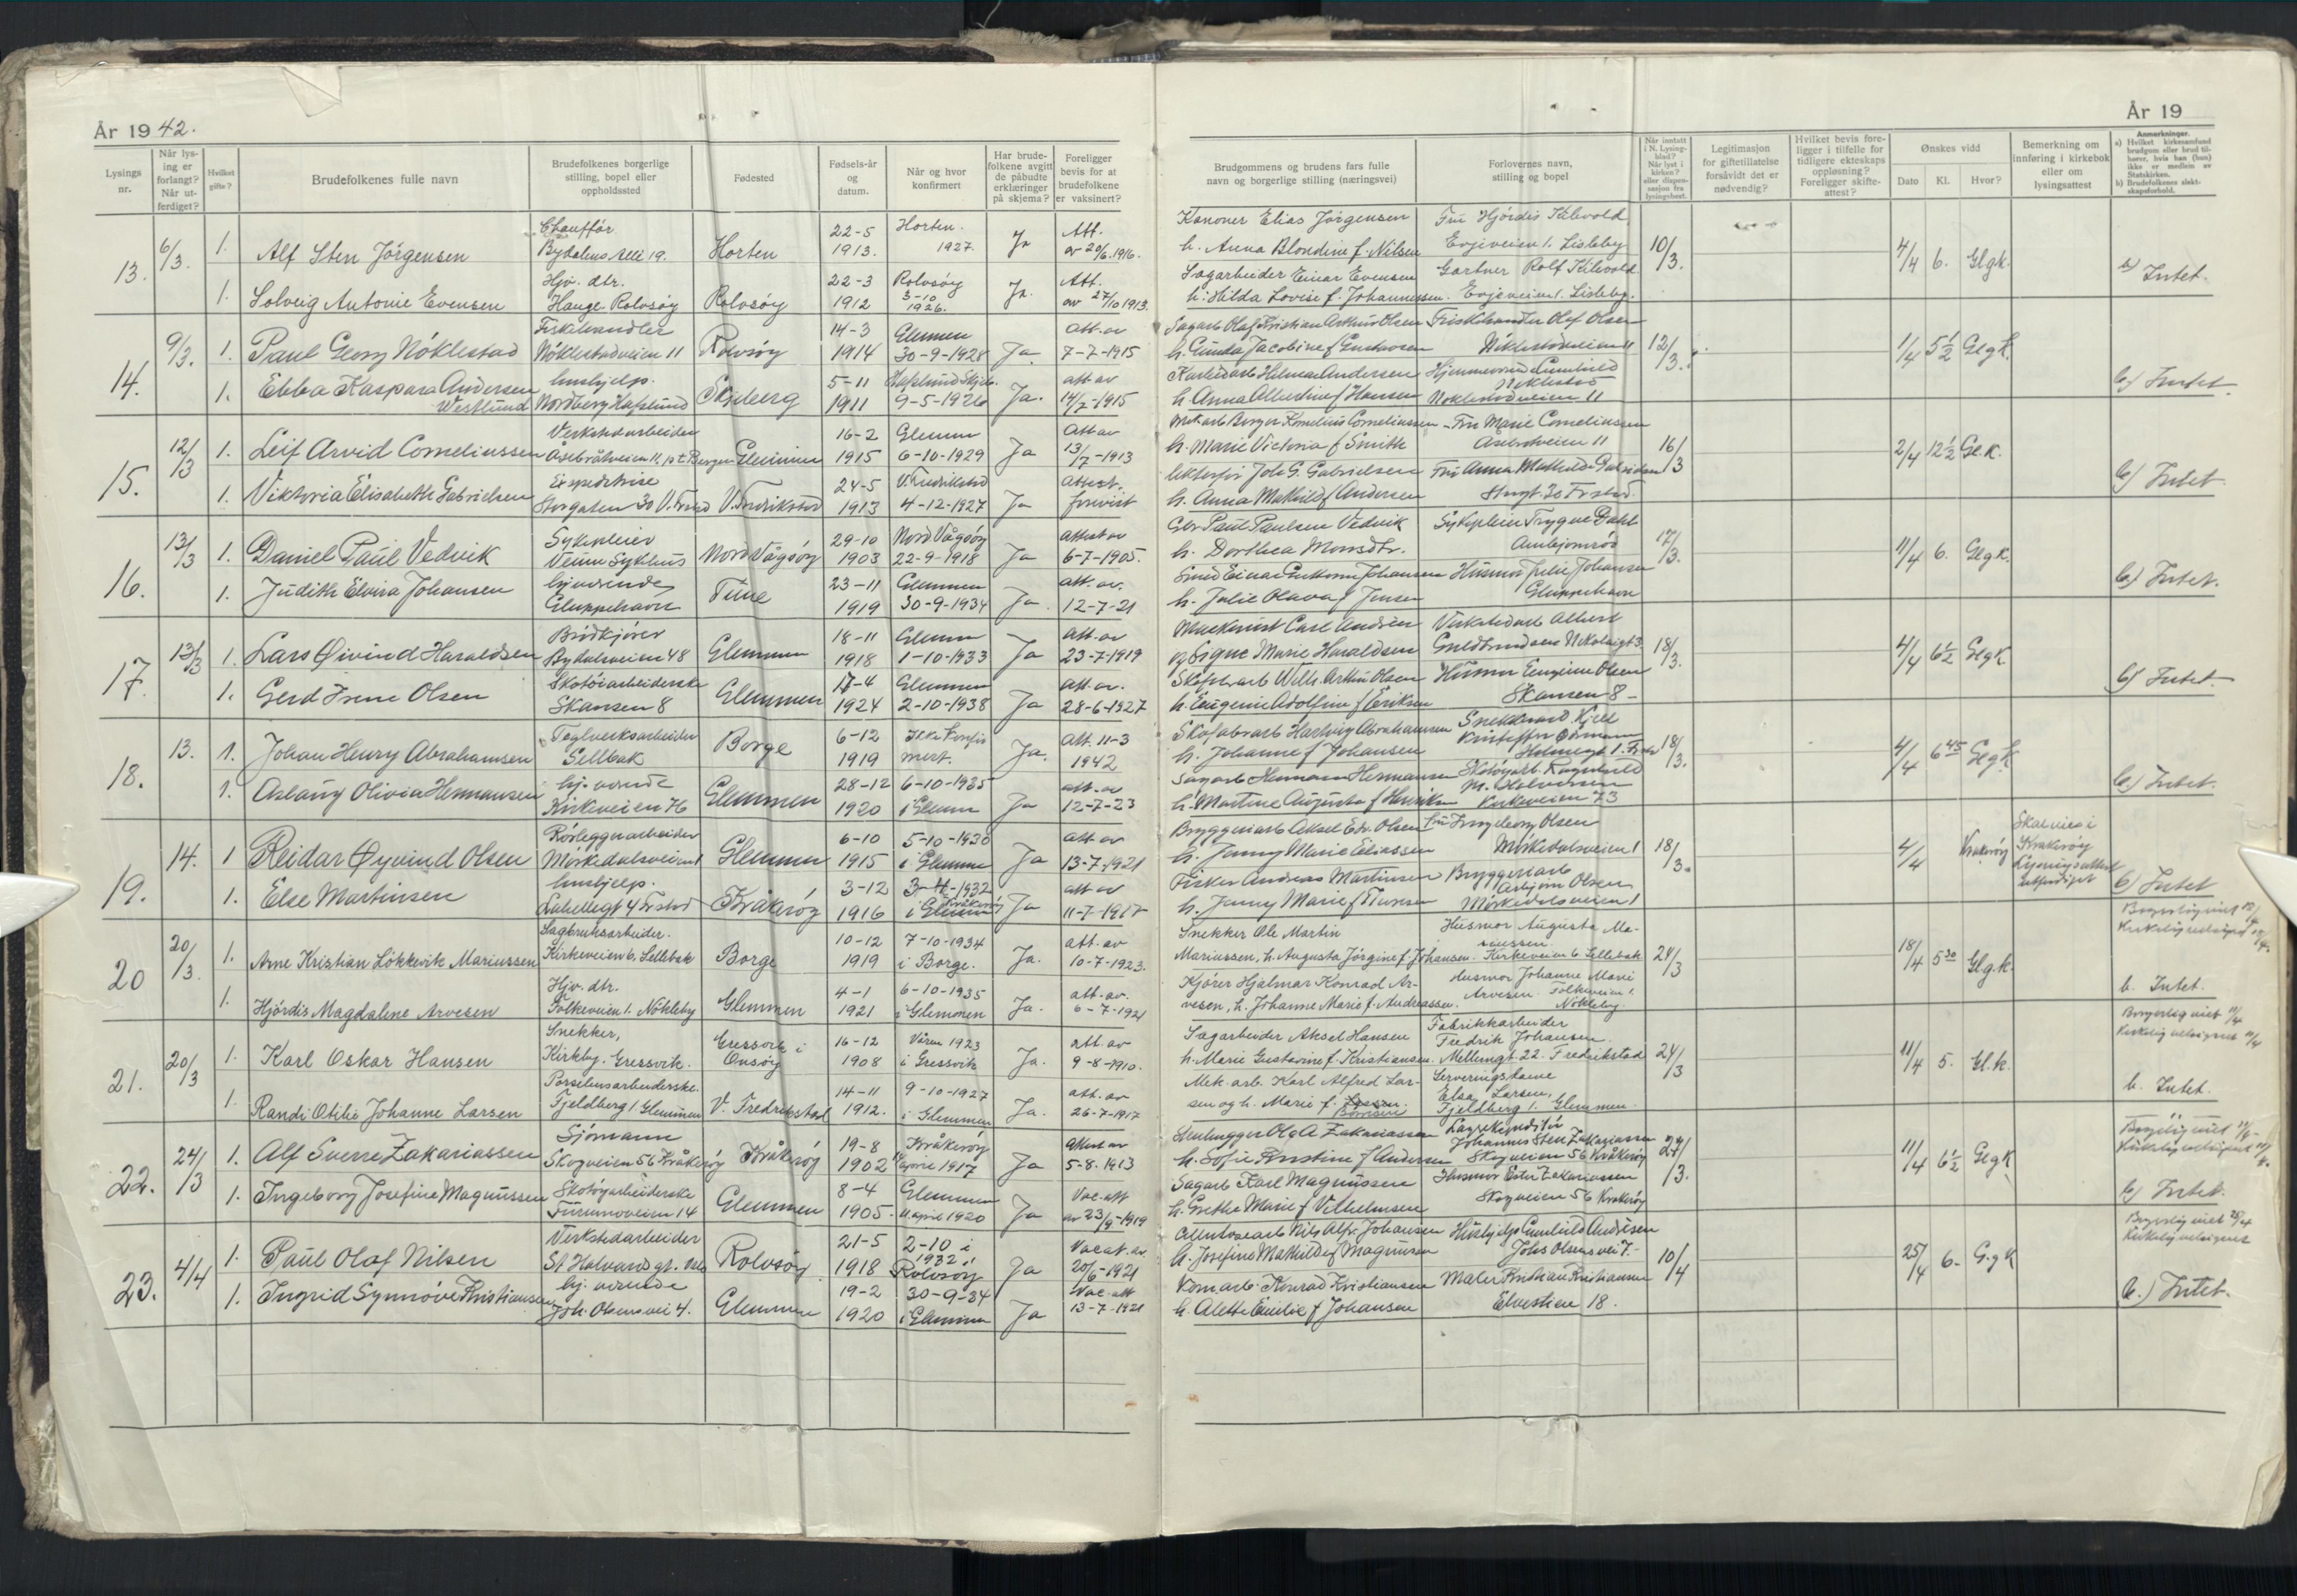 År 1942.
Lysings nr.
Når lysing er forlangt? Når utferdiget?
Hvilket gifte?
Brudefolkenes fulle navn
Brudefolkenes borgerlige stilling, bopel eller oppholdssted
Fødested
Fødsels-år og datum.
Når og hvor konfirmert
Har brudefolkene avgitt de påbudte erklæringer på skjema?
Foreligger bevis for at brudefolkene er vaksinert?
13.
6/3.
1.
Alf Sten Jörgensen
Chaufför
Bydalens Alle 19.
Horten
22-5
1913.
Horten.
1927.
Ja
Att.
av 20/6.1916.
1.
Solveig Antonie Evensen
Hjv. dtr.
Hauge Rolvsöy
Rolvsöy
22-3
1912
Rolvsöy
3-10
1926.
Ja.
Att.
av 27/10 1913.
14.
9/3.
1.
Paul Georg Nöklestad
Fiskehandler
Nöklestadveien 11
Rolvsöy
14-3
1914
Glemmen
30-9-1928
Ja
att. av
7-7-1915
1.
Ebba Kaspara Andersen
Westlund
hushjelp.
Nordberg Hafslund
Skjeberg
5-11
1911
Hafslund Skjeb.
9-5-1926
Ja.
att av
14/7-1915
15.
12/3
1.
Leif Arvid Corneliussen
Verkstedarbeider
Glemmen
16-2
1915
Glemm
6-10-1929
Ja
Att av
13/7-1913
1.
Viktoria Elisabeth Gabrielsen
Expeditrise
Storgaten 30 V. Fr.stad
V. Fredrikstad
24-5
1913
V. Fredrikstad
4-12-1927
Ja
Attest.
forevist
16.
13/3
1.
Daniel Paul Vedvik
Sykepleier
Veum Sykehus
Nord Vågsöy
29-10
1903
Nord Vågsöy
22-9-1918
Ja
Attest av
6-7-1905.
1.
Judith Elvira Johansen
hjv. kvinde
Gluppehavn
Tune
23-11
1919
Glemmen
30-9-1934
Ja.
att. av.
12-7-21
17.
13/3
1.
Lars Øivind Haraldsen
Brödkjörer
Bydalsveien 48
Glemmen
18-11
1918
Glemm
1-10-1933
Ja
att. av
23-7-1919
1.
Gerd Irene Olsen
Skotöiarbeiderske
Skansen 8
Glemmen
17-4
1924
Glemmen
2-10-1938
Ja
att. av.
28-6-1927
18.
13.
1.
Johan Henry Abrahamsen
Teglverksarbeider
Sellbak
Borge
6-12
1919
Ikke konfir
mert.
Ja.
Att. 11-3
1942
1.
Aslaug Olivia Hermansen
hj. værende
Kirkeveien 76
Glemmen
28-12
1920
6-10-1935
i Glemm
Ja
att. av
12-7-23
19.
14.
1
Reidar Øyvind Olsen
Rörleggerarbeider
Mörkedalsveien 1
Glemmen
6-10
1915
5-10-1930
i Glemm
Ja
att av
13-7-1921
1.
Else Martinsen
hushjelp.
Kråkeröy
3-12
1916
1932
Kråkeröy
Ja
att av
11-7-1917
20
20/3.
1.
Arne Kristian Lökkevik Mariussen
Sagbruksarbeider.
Kirkeveien 6, Sellebak
Borge
10-12
1919
7-10-1934
i Borge.
Ja.
att. av
10-7-1923.
1.
Hjördis Magdalene Arvesen
Hjv. dtr.
Folkeveien 1. Nökleby
Glemmen
4-1
1921
6-10-1935
i Glemmen
Ja.
att. av.
6-7-1921
21.
20/3
1.
Karl Oskar Hansen
Snekker,
Kirkby. Gressvik.
Gressvik i
Onsöy
16-12
1908
Våren 1923
i Gressvik
Ja.
att. av
9-8-1910.
1.
Randi Otilie Johanne Larsen
Porselensarbeiderske.
Fjeldberg 1 Glemmen
V. Fredrikstad
14-11
1912.
9-10-1927
i Glemmen
Ja.
att. av
26-7-1917
22.
24/3
1.
Alf Sverre Zakariassen
Sjömann
Skogveien 56 Kråkeröy
Kråkeröy
19-8
1902
Kråkeröy
april 1917
Ja
Attest av
5-8-1913
1.
Ingeborg Josefine Magnussen
Skotöyarbeiderske
Furumoveien 14
Glemmen
8-4
1905.
Glemmen
11 april 1920
Ja
Vac. att
av 23/9-1919
23.
4/4
1.
Paul Olaf Nilsen
Verkstedarbeider
St Halvards gt. Oslo
Rolvsöy
21-5
1918
2-10 i
1932 i
Rolvsöy
Ja
Vac at. av.
20/6-1921
1.
Ingrid Synnöve Kristiansen
hj. værende
Joh. Olsens vei 4.
Glemmen
19-2
1920
30-9-34
i Glemmen
Ja
Vac. att
13-7-1921
År 19
Brudgommens og brudens fars fulle navn og borgerlige stilling (næringsvei)
Forlovernes navn, stilling og bopel
Når inntatt i N. Lysing-blad? Når lyst i kirken? eller dispensasjon fra lysingsbest.
Legitimasjon for giftetillatelse forsåvidt det er nødvendig?
Hvilket bevis foreligger i tilfelle for tidligere ekteskaps oppløsning? Foreligger skifteattest?
Ønskes vidd
Dato
Kl.
Hvor?
Bemerkning om innføring i kirkebok eller om lysingsattest
Anmerkninger.
a) Hvilket kirkesamfund brudgom eller brud tilhører, hvis han (hun) ikke er medlem av Statskirken.
b) Brudefolkenes slektskapsforhold.
Kanoner Elias Jörgensen
h. Anna Blondine f. Nilsen
Fru Hjördis Kilevold
Evjeveien 1. Lisleby
10/3.
4/4
6.
Glgk.
Sagarbeider Einar Evensen
h. Hilda Lovise f. Johannessen.
Gartner Rolf Kilevold
Evjeveien 1. Lisleby.
Intet.
Sagarb Olaf Kristian Arthur Olsen
h. Gunda Jacobine f Gustavsen
Fiskehandler Olaf Olsen
Nöklestadveien 11
12/3.
1/4
5 1/2
Glgk.
h. Anna Albertine f Hansen
Nöklestad
Nöklestadveien 11
b) Intet
h. Marie Victoria f Smith
Fru Marie Corneliussen
16/3
2/4
12 1/2
Gl.k.
h. Anna Mathilde f Andersen
Storgt. 30 Fr.stad.
b) Intet.
Gbr. Paul Paulsen Vedvik
h. Dorthea Monsdtr.
Sykepleier Trygve Dahl
17/3.
11/4
6.
Glgk.
h. Julie Olava f Jensen
Husmor Julie Johansen
Gluppehavn
b.) Intet.
og Signe Marie Haraldsen
18/3.
4/4
6 1/2
Glgk
h. Eugenie Adolfine f Eriksen
Husmor Eugenie Olsen
Skansen 8-
b) Intet.
h. Johanne f Johansen
18/3.
4/4
6 45
Glgk.
Sagarb Hermann Hermansen
h. Martine Augusta f Henriksen
M. Halvorsen
Kirkeveien 73
b.) Intet.
Bryggeriarb Aksel Edv. Olsen
h. Jenny Marie Eliassen
Fru Ingeborg Olsen
Mörkedalsveien 1
18/3.
4/4
Kråkeröy
Skal vies i
Kråkeröy
Lysningsattest
utferdiget
Fisker Andreas Martinsen
Bryggeriarb
Asbjørn Olsen
Mörkedalsveien 1
b) Intet
Snekker Ole Martin
Mariussen, h. Augusta Jörgine f. Johansen.
Husmor Augusta Ma-
riussen.
Kirkeveien 6 Sellebak
24/3
18/4
5 30
Glgk.
Kjörer Hjalmar Konrad Ar-
vesen, h. Johanne Marie f. Andreassen.
Husmor Johanne Marie
Arvesen. Folkeveien 1.
Nökleby.
b. Intet.
Sagarbeider Aksel Hansen
h. Marie Gustavine f. Kristiansen.
Fabrikkarbeider
Fredrik Johansen.
Mellemgt. 22. Fredrikstad
24/3
11/4
5.
Gl.k.
Borgerlig viet 11/4
Kirkelig velsignet 11/4
Mek. arb. Karl Alfred Lar-
sen og h. Marie f.
Serveringsdame
Else Larsen,
Fjeldberg 1. Glemmen.
b. Intet.
Stenhugger Ole A Zakariassen
h. Sofie Kristine f Andersen
Johannes Sten Zakariassen
Skogveien 56 Kråkeröy
24/3.
11/4
6 1/2
Glgk
Sagarb Karl Magnussen
h. Grethe Marie f Vilhelmsen
Husmor Ester Zakariassen
Skogveien 56 Kråkeröy
b) Intet.
h. Josefine Mathilde f Magnussen
Hushjelp Gunhild Andresen
Johs Olsens vei 7.
10/4
25/4
6.
G.gk
Borgerlig viet 25/4
Kirkelig velsignet
Kom arb. Konrad Kristiansen
h. Alette Emilie f Johansen
Maler Kristian Kristiansen
Elvestien 18.
b.) Intet.